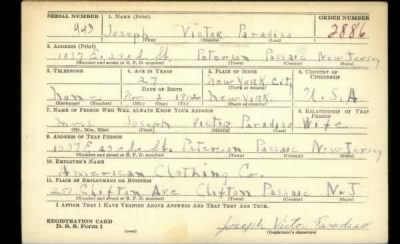 SERIAL NUMBER 1. NAME (Print) ORDER NUMBER
943 Joseph Victor Paradiso 2886
(First) (Middle) (Last)
2. ADDRESS (Print)
1037 E. 23rd St. Paterson Passaic New Jersey
(Number and street or R. F. D. number) (Town) (County) (State)
3. TELEPHONE 4. AGE IN YEARS 5. PLACE OF BIRTH 6. COUNTRY OF CITIZENSHIP
27 New York City
DATE OF BIRTH (Town or county)
None Nov. 1912 New York U.S.A
7. NAME OF PERSON WHO WILL ALWAYS KNOW YOUR ADDRESS 8. RELATIONSHIP OF THAT PERSON
Mrs. Joseph Victor Paradiso Wife
(Mr., Mrs., Miss) (First) (Middle) (Last)
9. ADDRESS OF THAT PERSON
1037 E. 23rd St. Paterson Passaic New Jersey
(Number and street or R. F. D. number) (Town) (County) (State)
10. EMPLOYER'S NAME
American Clothing Co.
11. PLACE OF EMPLOYMENT OR BUSINESS
Clifton Ave Clifton Passaic N.J
(Number and street or R. F. D. number) (Town) (County) (State)
I AFFIRM THAT I HAVE VERIFIED ABOVE ANSWERS AND THAT THEY ARE TRUE.
REGISTRATION CARD
D. S. S. Form 1 Joseph Victor Paradiso
(Registrant's signature)